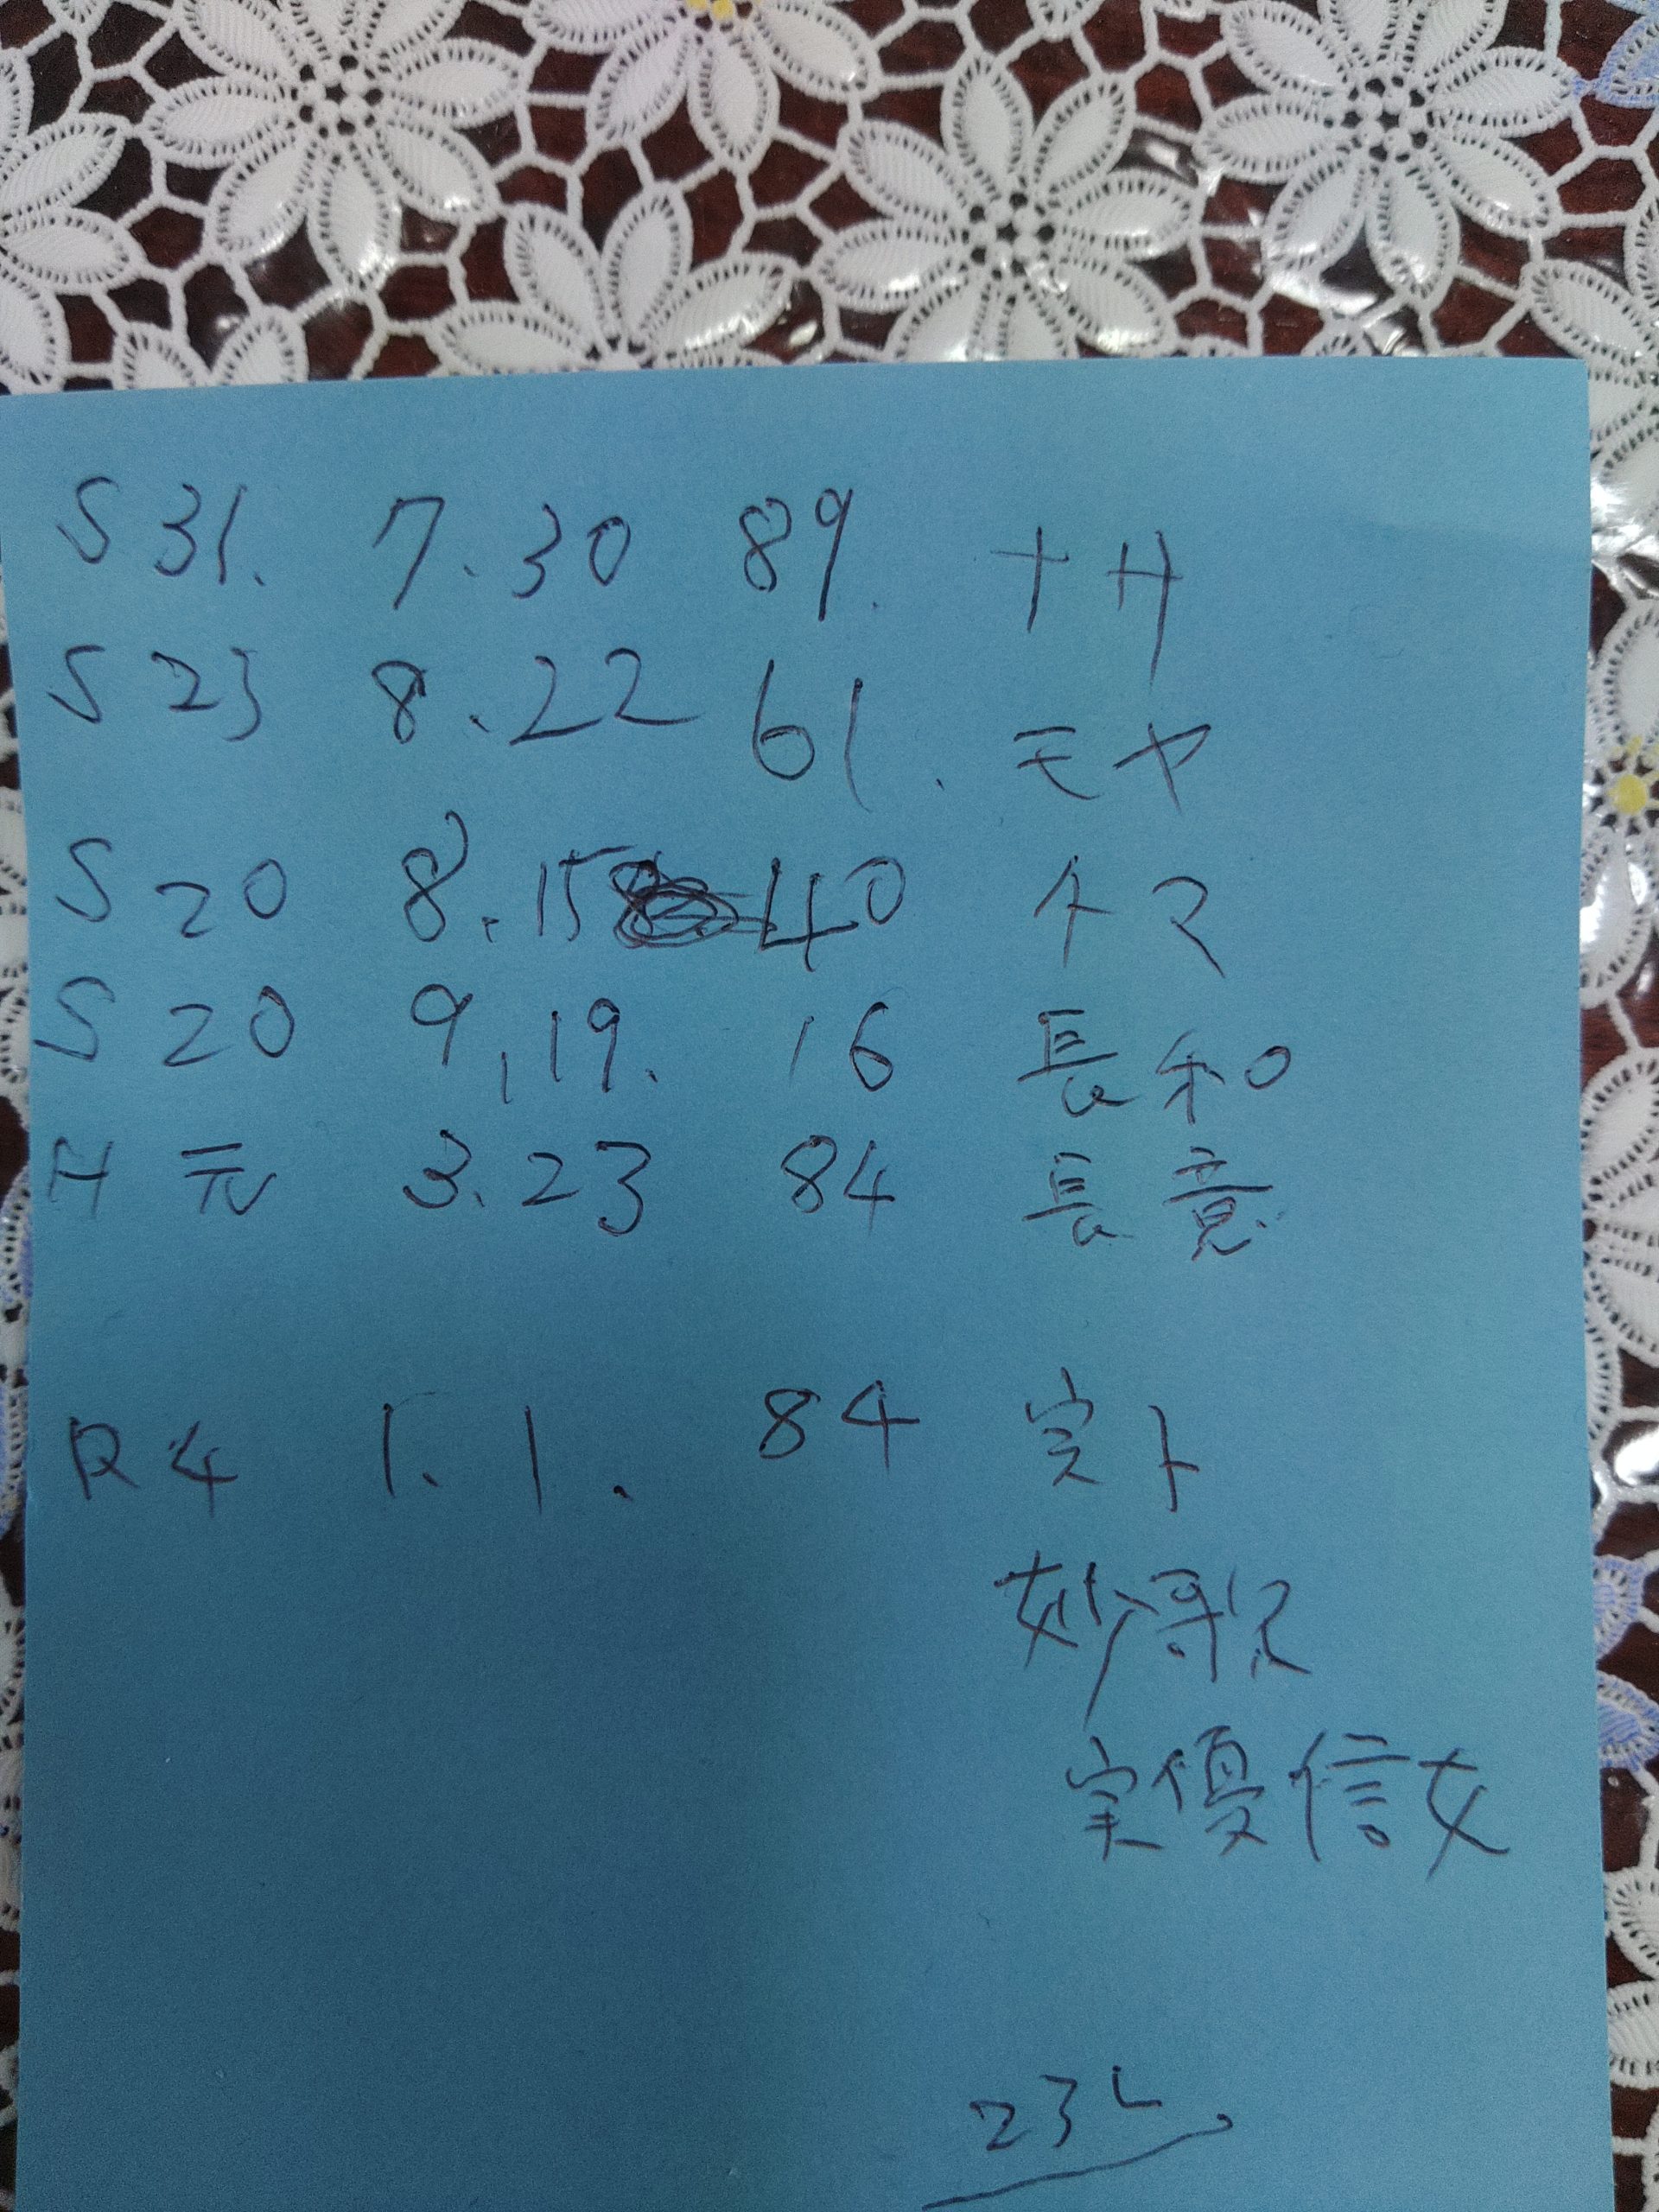 S31. 7.30 89. ナサ
S23 8.22 61. モヤ
S20 8.15 40 イマ
S20 9.19. 16 長和
H元 3.23 84 長意
R4 1.1. 84 実ト
妙歌
実優信女